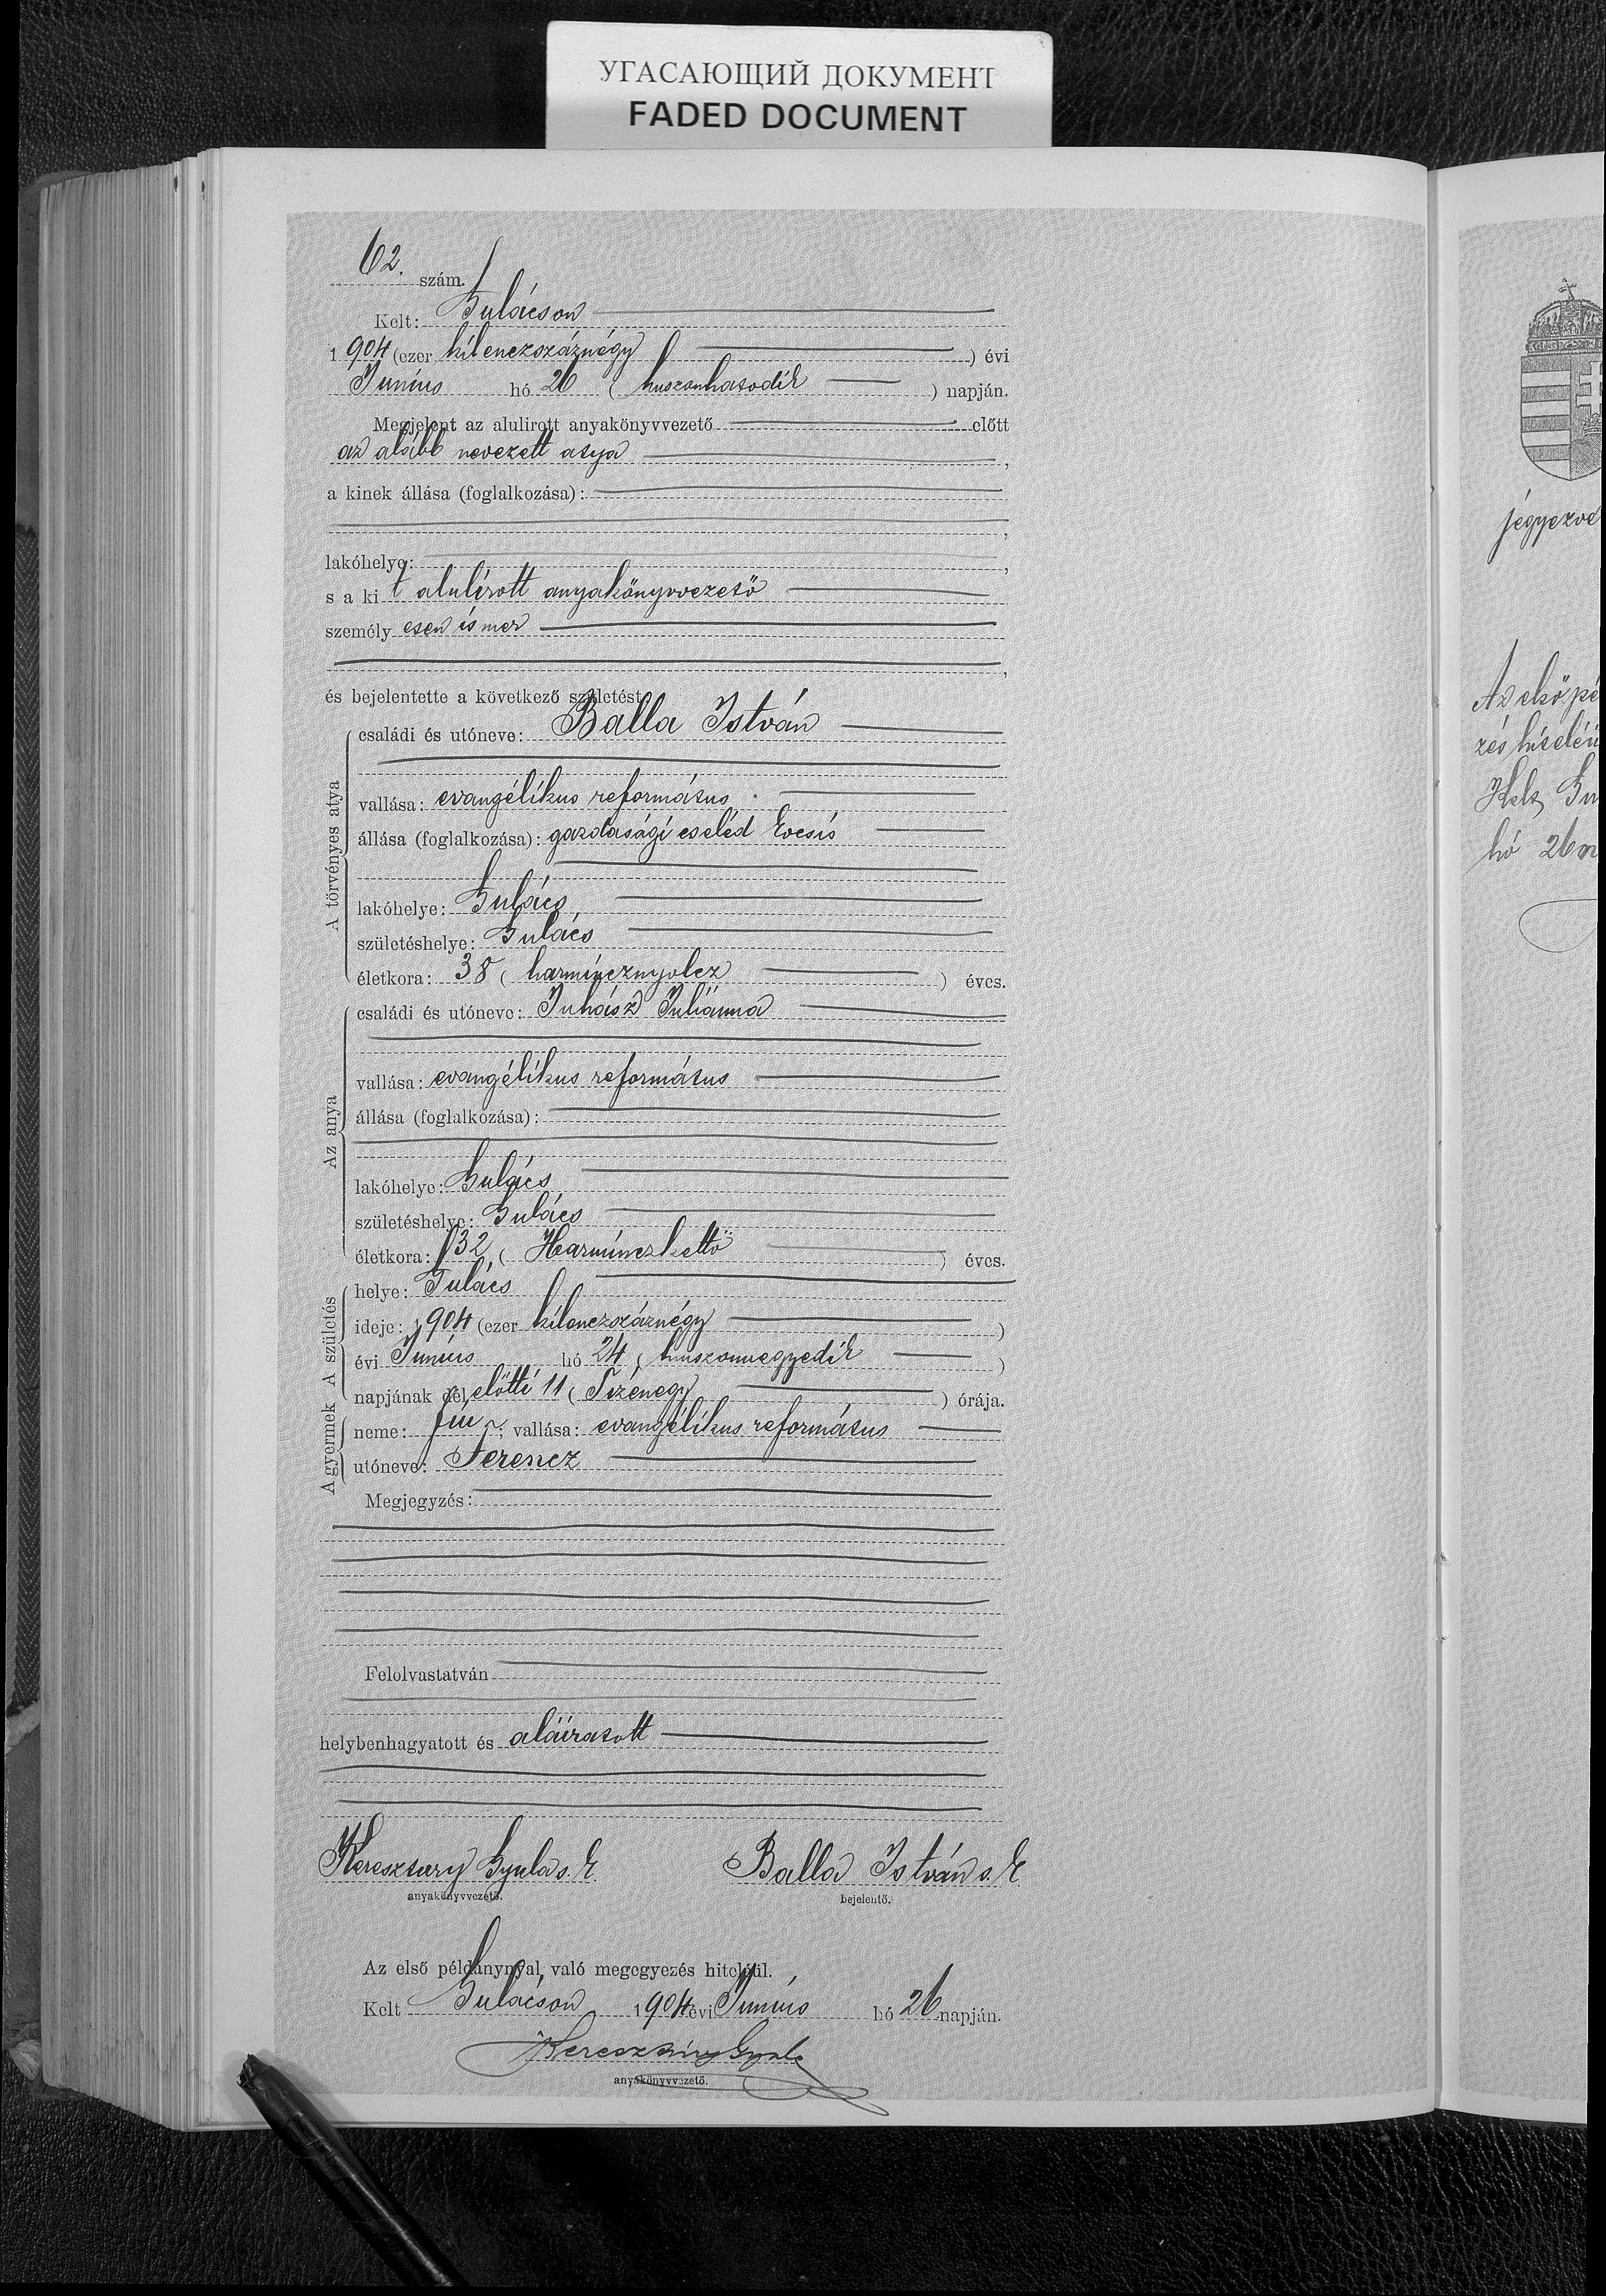 УГАСАЮЩИЙ ДОКУМЕНТ
FADED DOCUMENT
62. szám.
Kelt: Gulácson
1904 (ezer kilenczszáznégy) évi
Junius hó 26 (huszonhatodik) napján.
Megjelent az alulirott anyakönyvvezető előtt
az alább nevezett atya,
a kinek állása (foglalkozása):
,
lakóhelye: ,
s a kit alulírott anyakönyvvezető
személyesen ismer
,
és bejelentette a következő születést:
A törvényes atya
családi és utóneve: Balla István
vallása: evangélikus református
állása (foglalkozása): gazdasági cseléd
lakóhelye: Gulács
születéshelye: Gulács
életkora: 38 (harmincznyolcz) éves.
Az anya
családi és utóneve: Juhász Juliánna
vallása: evangélikus református
állása (foglalkozása):
lakóhelye: Gulács
születéshelye: Gulács
életkora: 32 (Harminczkettő) éves.
A születés
helye: Gulács
ideje: 1904 (ezer kilenczszáznégy)
évi Junius hó 24 (huszonnegyedik)
napjának délelőtti 11 (Tizenegy) órája.
A gyermek
neme: fiu; vallása: evangélikus református
utóneve: Ferencz
Megjegyzés:
Felolvastatván
helybenhagyatott és aláíratott
Keresztury Gyula s. k. Balla István s. k.
anyakönyvvezető. bejelentő.
Az első példánynyal való megegyezés hiteléül.
Kelt Gulácson 1904 évi Junius hó 26 napján.
Keresztury Gyula
anyakönyvvezető.
jegyezvé
Az első pé
zés hiteléü
Kelt, Gu
hó 26 n